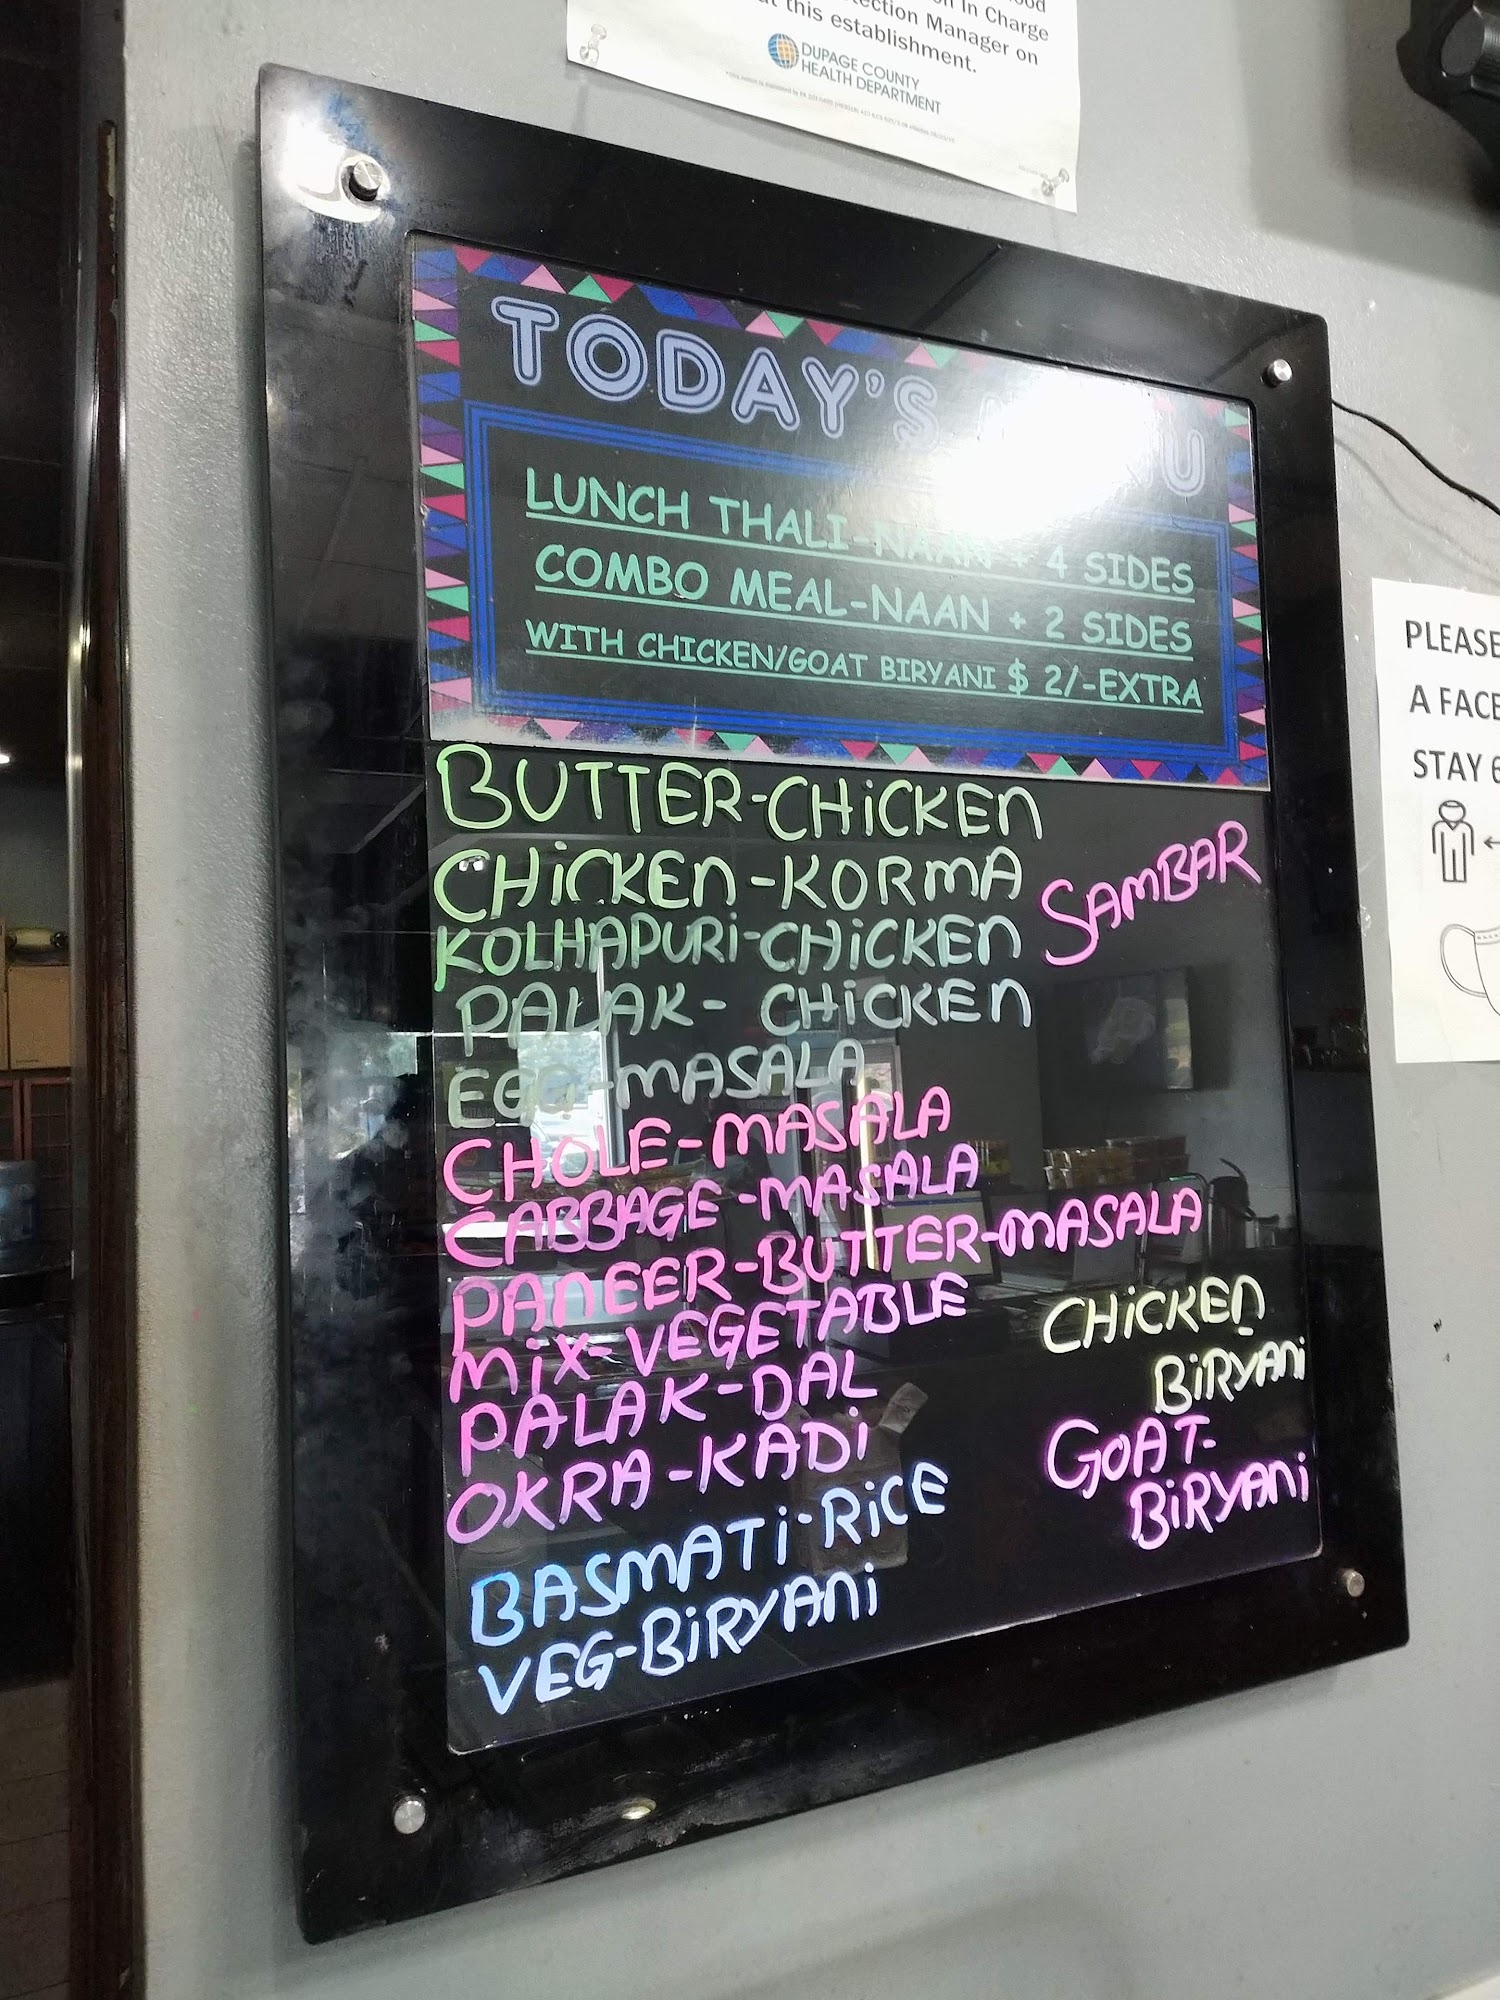 ood
n In Charge
tection Manager on
at this establishment.
DUPAGE COUNTY
HEALTH DEPARTMENT
TODAY'S MENU
LUNCH THALI-NAAN + 4 SIDES
COMBO MEAL-NAAN + 2 SIDES
WITH CHICKEN/GOAT BIRYANI $ 2/-EXTRA
BUTTER-CHICKEN
CHICKEN-KORMA
SAMBAR
KOLHAPURI-CHICKEN
PALAK- CHICKEN
EGG-MASALA
CHOLE-MASALA
CABBAGE-MASALA
PANEER-BUTTER-MASALA
MIX-VEGETABLE
PALAK-DAL
OKRA-KADI
CHICKEN
BIRYANI
GOAT-
BIRYANI
BASMATI-RICE
VEG-BIRYANI
PLEASE
A FACE
STAY 6